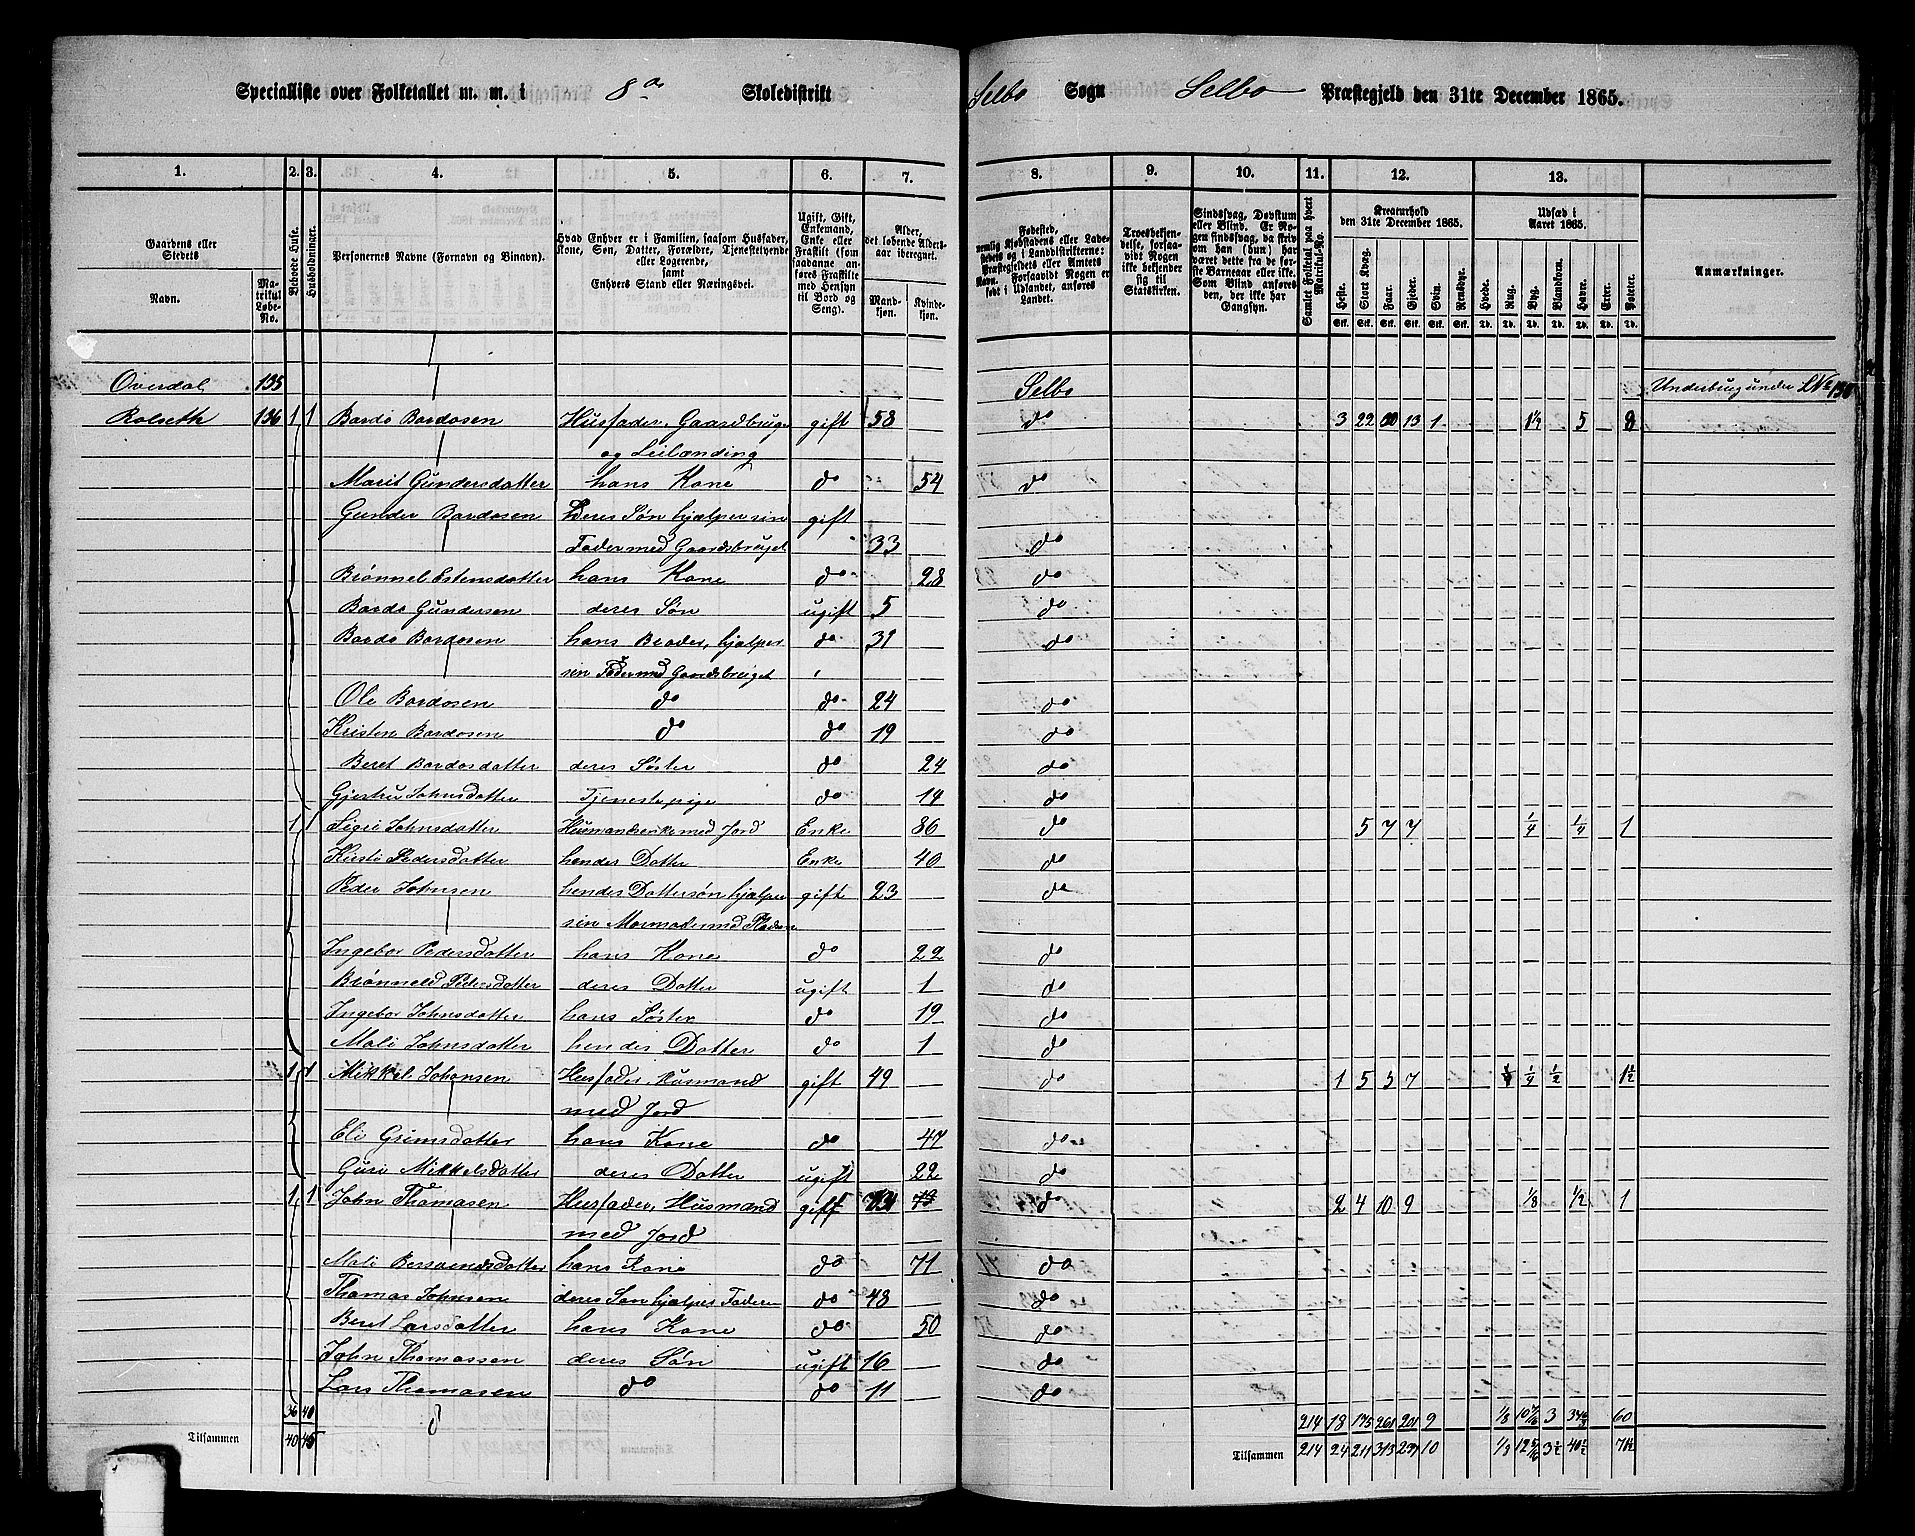 Specialliste over Folketallet m. m. i 8de Skoledistrikt Selbo Sogn Selbo Præstegjeld den 31te December 1865.
1. 2. 3. 4. 5. 6. 7. 8. 9. 10. 11. 12. 13.
Gaardens eller Stedets Navn.
Matrikul Løbe-No.
Beboede Huse.
Husholdninger.
Personernes Navne (Fornavn og Binavn).
Hvad Enhver er i Familien, saasom Husfader, Kone, Søn, Datter, Forældre, Tjenestetyende eller Logerende, samt Enhvers Stand eller Næringsvei.
Ugift, Gift, Enkemand, Enke eller Fraskilt (som saadanne anføres Fraskilte med Hensyn til Bord og Seng).
Alder, det løbende Alders-aar iberegnet.
Mandkjøn. Kvindekjøn.
Fødested, nemlig Kjøbstadens eller Ladestedets og i Landdistrikterne: Præstegjeldets eller Amtets Navn. Forsaavidt Nogen er født i Udlandet, anføres Landet.
Troesbekjendelse, forsaavidt Nogen ikke bekjender sig til Statskirken.
Sindssvag, Døvstum eller Blind. Er Nogen sindssvag, da skriv om han (hun) har været dette fra de første Barneaar eller ikke. Som Blind anføres den, der ikke har Gangsyn.
Samlet Folketal paa hvert Matrikul-No.
Kreaturhold den 31te December 1865.
Heste. Stort Kvæg. Faar. Gjeder. Svin. Rensdyr.
Udsæd i Aaret 1865.
Hvede. Rug. Byg. Blandkorn. Havre. Erter. Poteter.
Anmærkninger.
Overdal 135 Selbo Underbrug under LNo 130
Rolseth 136 1 1 Bardo Bardosen Husfader, Gaardbruger gift 58 do 3 22 13 1 1½ 5 8
og Leilænding
Marit Gundersdatter hans Kone do 54 do
Gunder Bardosen Deres Søn hjælper sin gift
Fader med Gaardsbruget 33 do
Brønnel Estensdatter hans Kone do 28 do
Bardo Gundersen deres Søn ugift 5 do
Bardo Bardosen hans Broder, hjælper do 31 do
sin Fader med Gaardsbruget
Ole Bardosen do do 24 do
Kristen Bardosen do do 19 do
Beret Bardosdatter deres Søster do 24 do
Gjertru Johnsdatter Tjenestepige do 14 do
1 1 Sigri Johnsdatter Husmandsenke med Jord Enke 86 do 5 7 7 ¼ ¼ 1
Kirsti Pedersdatter hendes Datter Enke 40 do
Peder Johnsen hendes Dattersøn hjælper gift 23 do
sin Mormoder med Pladsen
Ingebor Pedersdatter hans Kone do 22 do
Brønneld Pedersdatter deres Datter ugift 1 do
Ingebor Johnsdatter hans Søster do 19 do
Mali Johnsdatter hendes Datter do 1 do
1 1 Mikkel Johnsen Husfader, Husmand gift 49 do 1 5 3 7 ¼ ½ 1½
med Jord
Eli Grimsdatter hans Kone do 47 do
Guri Mikkelsdatter deres Datter ugift 22 do
1 1 John Thomasen Husfader, Husmand gift do 2 4 10 9 ⅛ ½ 1
med Jord
Mali hans Kone do 71 do
Thomas Johnsen deres Søn hjælper Faderen do 48 do
Beret Larsdatter hans Kone do 50 do
John Thomassen deres Søn ugift 16 do
Lars Thomasen do do 11 do
36 40 214 18 175 261 201 9 ⅛ 3 60
Tilsammen 40 45 Tilsammen 214 24 211 313 10 3½ 40½ 71½